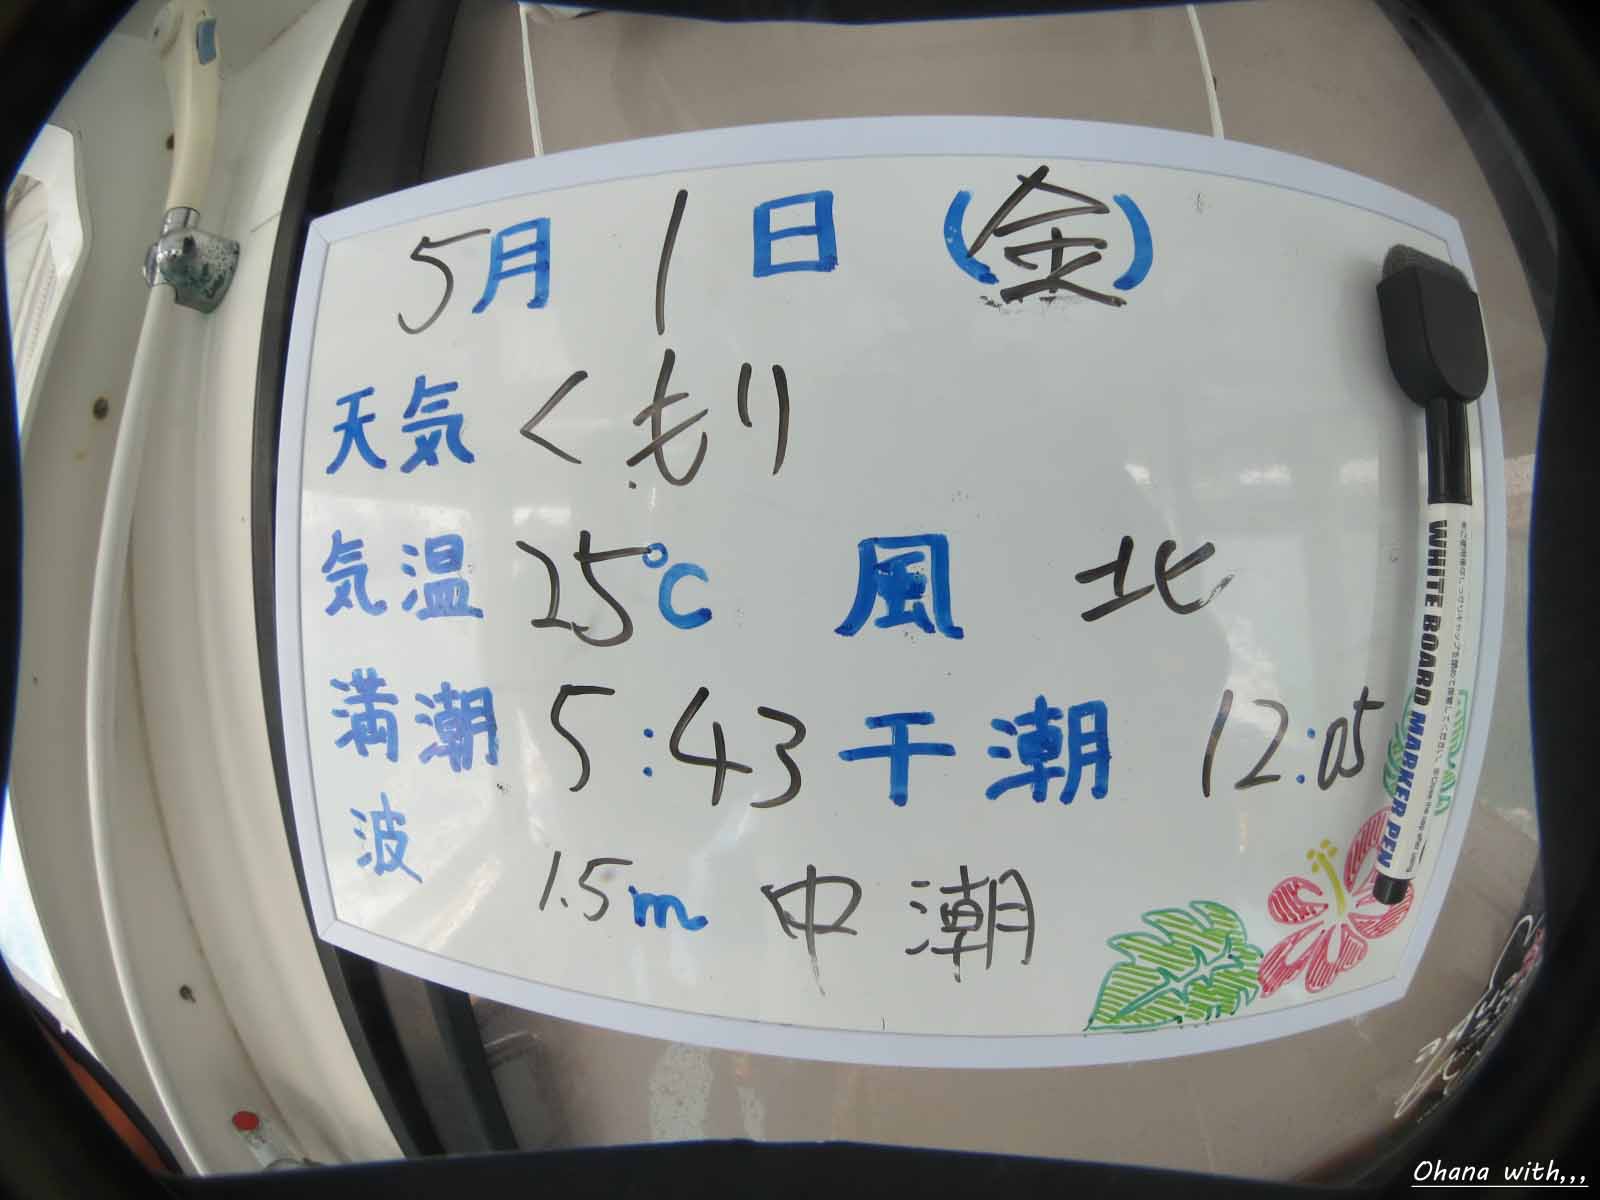 5月 1日 (金)
天気 くもり
気温 25℃ 風 北
満潮 5:43 干潮 12:05
波 1.5m 中潮
WHITE BOARD MARKER PEN
Ohana with,,,